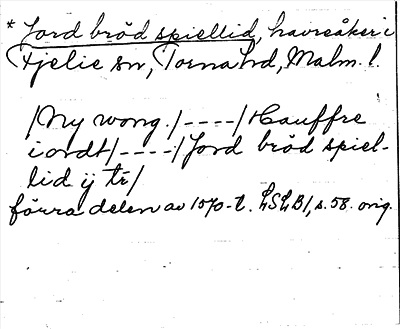 * Jord bröd spiellid, havreåker i
Fjelie sn, Torna hd, Malm. l.
/Ny wong./----/Hauffre
i ordt/----/Jord bröd spiel-
lid ij tr/
förra delen av 1570-t. LSLB1, s. 58. orig.